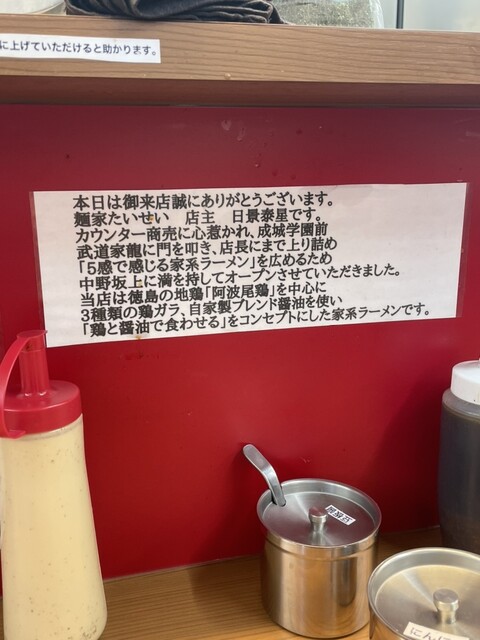 に上げていただけると助かります。
本日は御来店誠にありがとうございます。
麺家たいせい 店主 日景泰星です。
カウンター商売に心惹かれ、成城学園前
武道家龍に門を叩き、店長にまで上り詰め
「5感で感じる家系ラーメン」を広めるため
中野坂上に満を持してオープンさせていただきました。
当店は徳島の地鶏「阿波尾鶏」を中心に
3種類の鶏ガラ、自家製ブレンド醤油を使い
「鶏と醤油で食わせる」をコンセプトにした家系ラーメンです。
豆板醤
にん